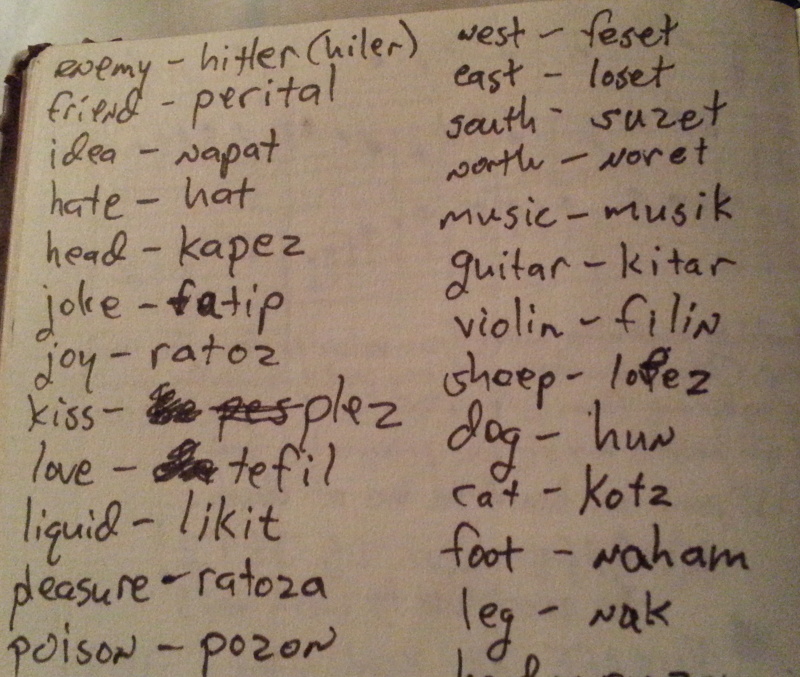 enemy - hitler (hiler)
friend - perital
idea - napat
hate - hat
head - kapez
joke - fatip
joy - ratoz
kiss - plez
love - tefil
liquid - likit
pleasure - ratoza
poison - pozon
west - feset
east - loset
south - suzet
north - noret
music - musik
guitar - kitar
violin - filin
sheep - lofez
dog - hun
cat - kotz
foot - naham
leg - nak